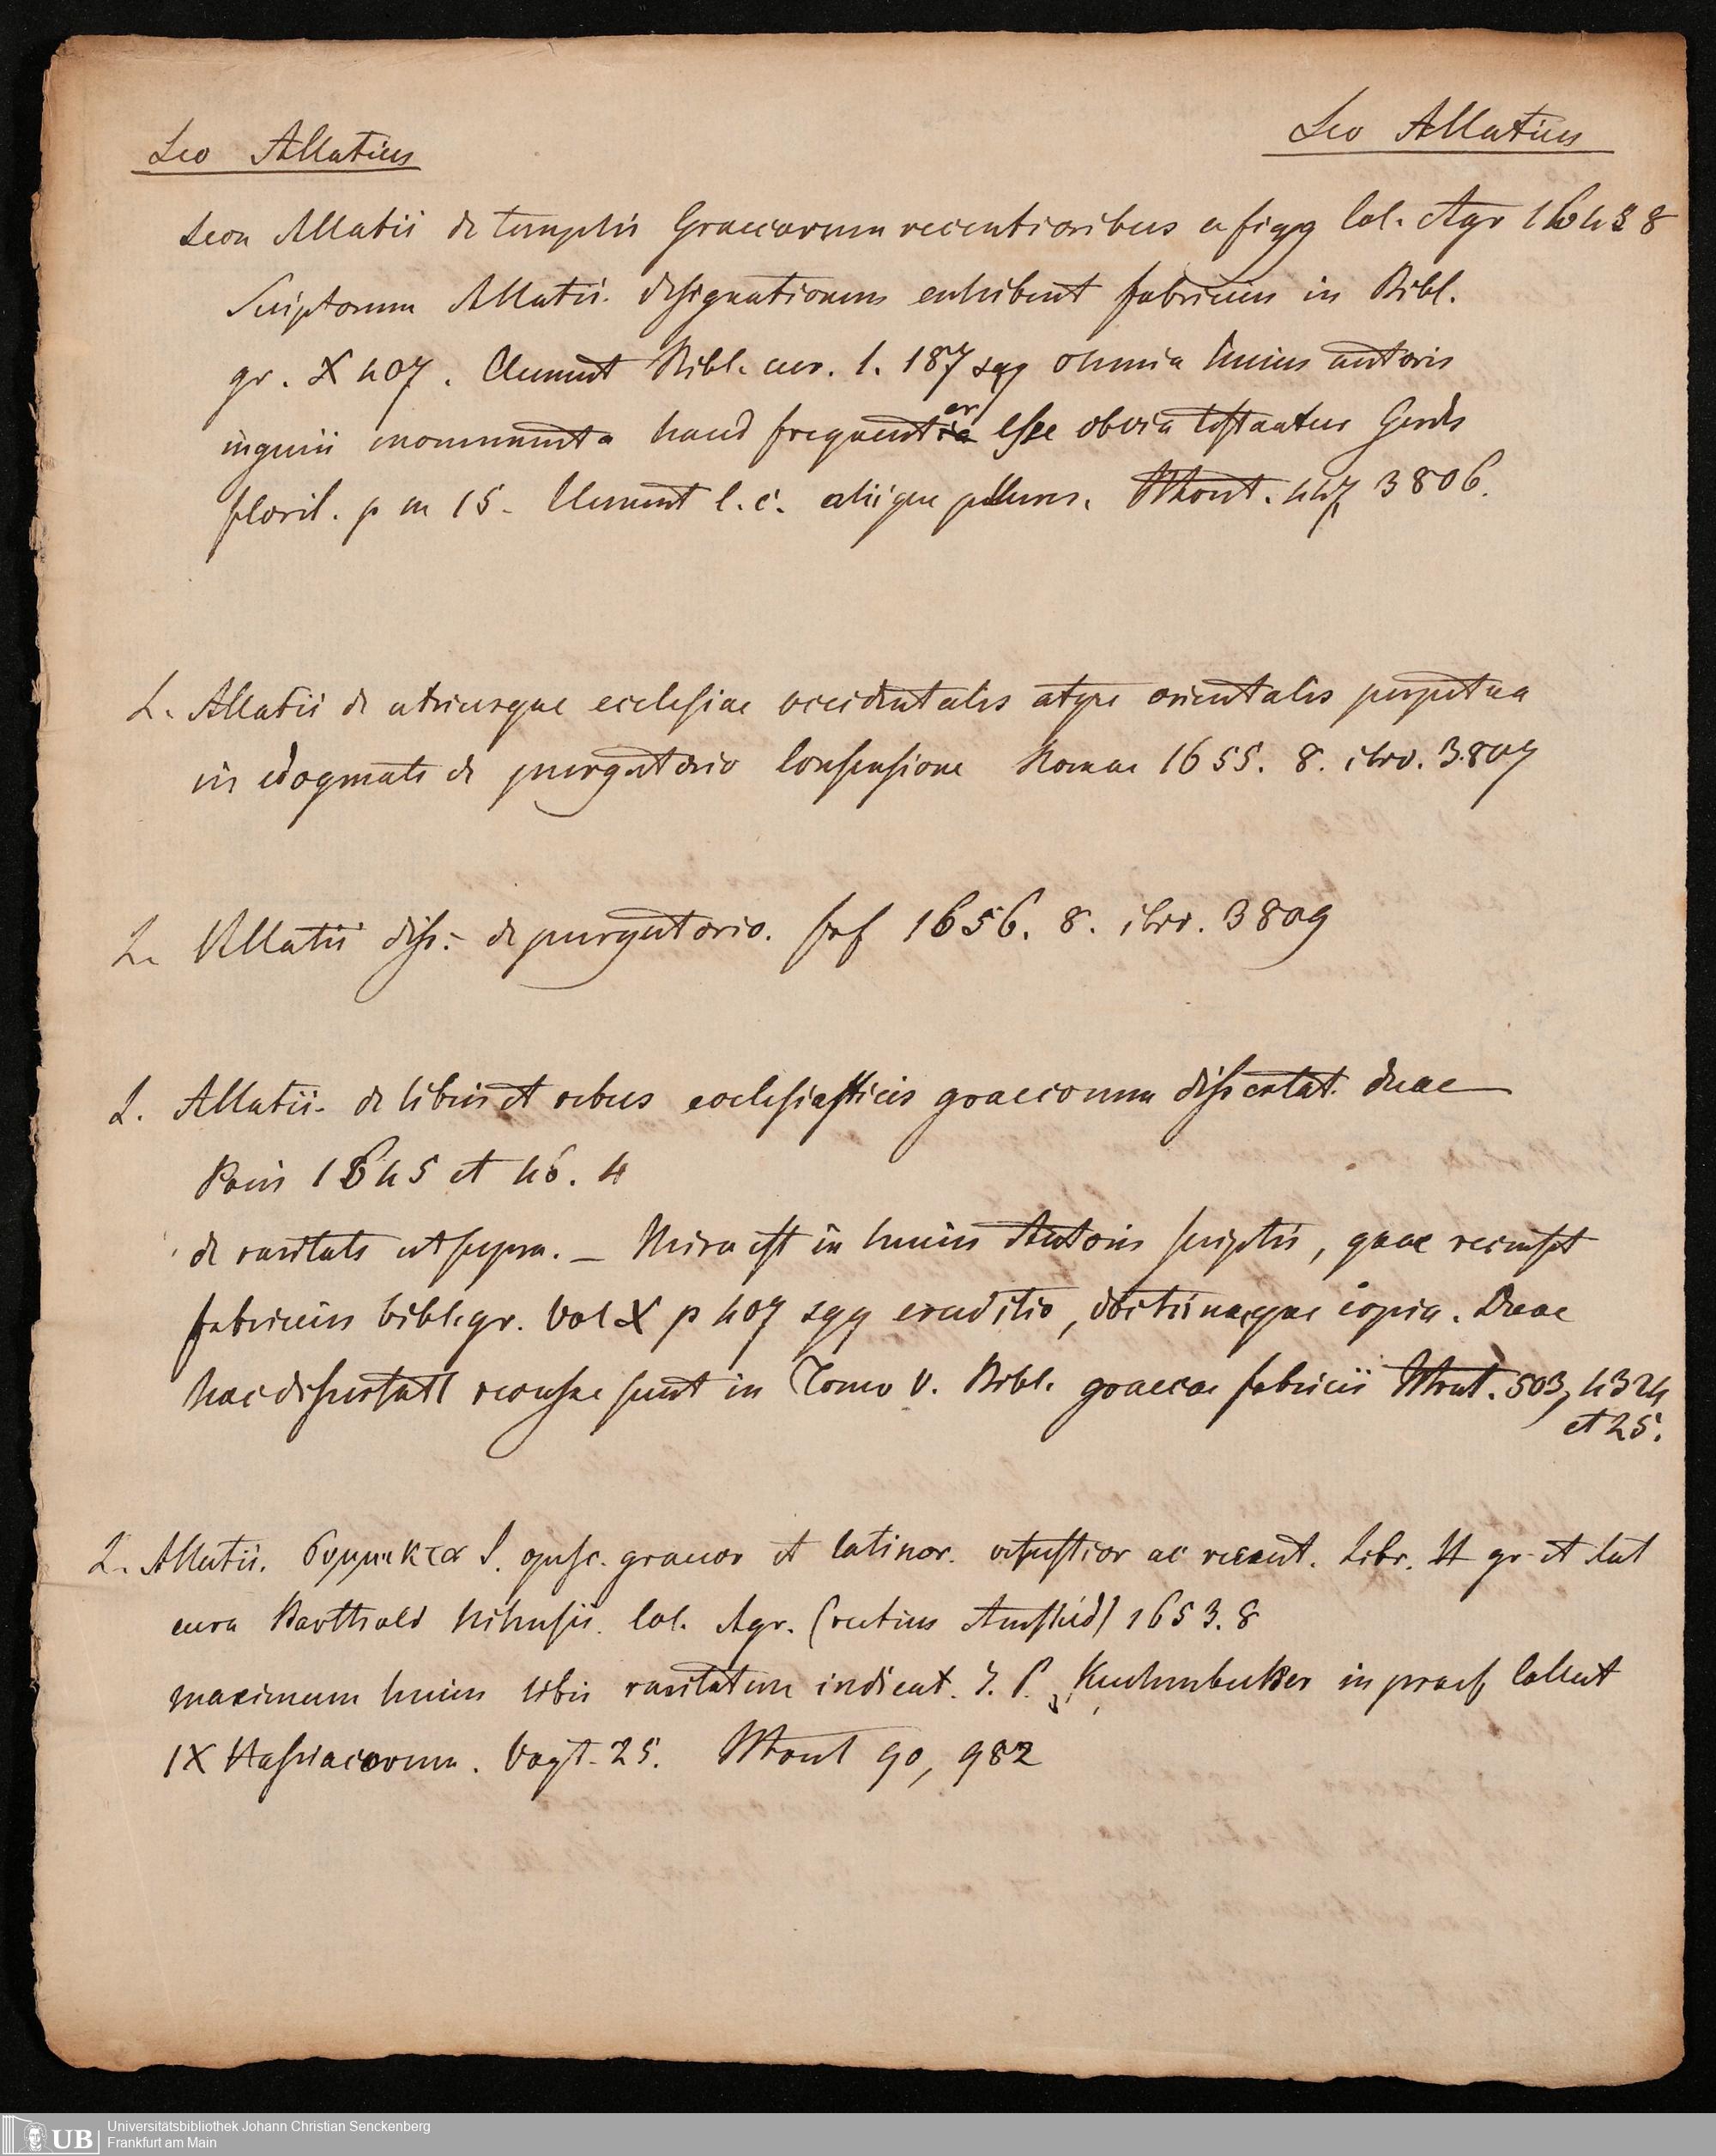 Leo Allatius
Leo Allatius
Leon Allatii de templis Graecorum recentioribus c figg Col. Agr 1645 8
Scriptorum Allatii designationem exhibent fabricius in Bibl.
gr. X 407. Clement Bibl. cur. 1. 187 sqq omnia huius autoris
ingenii monumenta haud frequenter esse obvia testantur Gerdes
floril. p m 15. Clement l. c. aliique plures. Mout. 447, 3806.
L. Allatii de utriusque ecclesiae occidentalis atque orientalis perpetua
in dogmate de purgatorio consensione Romae 1655. 8. ibid. 3807
L. Allatii diss. de purgatorio. 1656. 8. ibid. 3809
L. Allatii de libris et rebus ecclesiasticis graecorum dissertat. duae
Paris 1645 et 46. 4
de raritate ut supra. — Mira est in huius Autoris scriptis, quae recenset
fabricius bibl. gr. Vol X p 407 sqq eruditio, doctrinaeque copia. Duae
hae dissertatt recusae sunt in Tomo V. Bibl. graecae fabricii Mout. 503, 4324
et 25.
L. Allatii. Συμμικτα S. opusc. graecor et latinor. vetustior ac recent. Libr. II gr et lat
cura Barthold Nihusii. Col. Agr. (rectius Amstelod) 1653. 8
maximam huius libri raritatem indicat. I. P. Kuchenbecker in praef Collect
IX Hassiacorum. Vogt. 25. Mout 90, 982
UB
Universitätsbibliothek Johann Christian Senckenberg
Frankfurt am Main